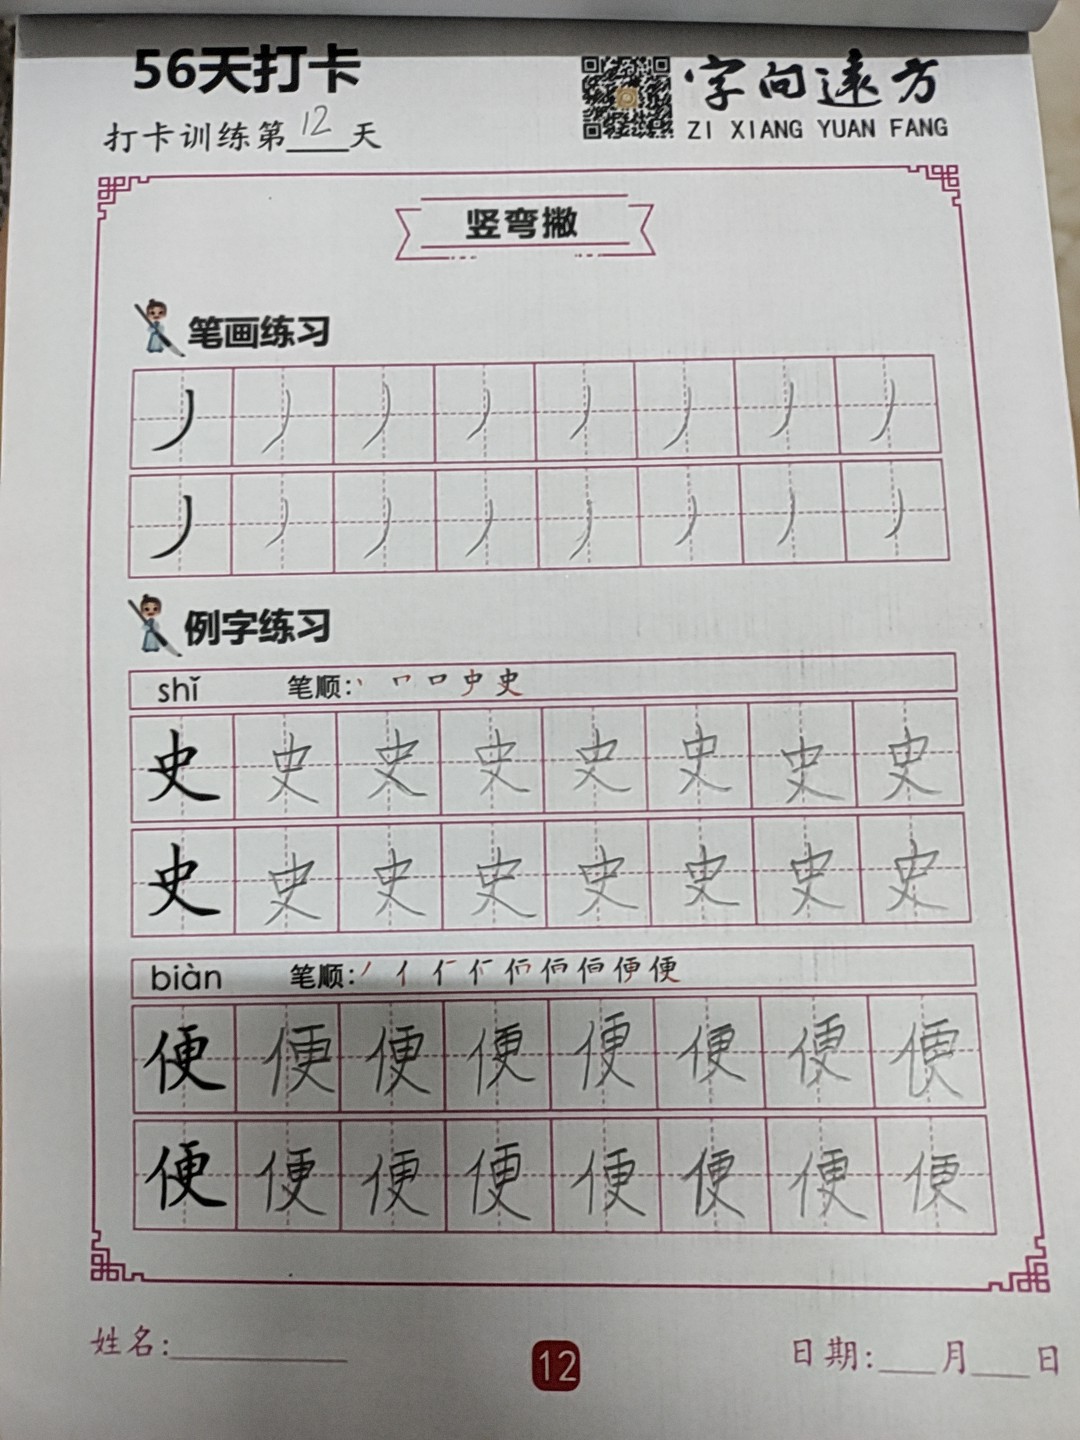 56天打卡
字向远方
ZI XIANG YUAN FANG
打卡训练第12天
竖弯撇
笔画练习
丿 丿 丿 丿 丿 丿 丿 丿
丿 丿 丿 丿 丿 丿 丿 丿
例字练习
shǐ 笔顺: 丶 𠃍 口 史 史
史 史 史 史 史 史 史 史
史 史 史 史 史 史 史 史
biàn 笔顺: 丿 亻 便
便 便 便 便 便 便 便 便
便 便 便 便 便 便 便 便
姓名:
12
日期: 月 日